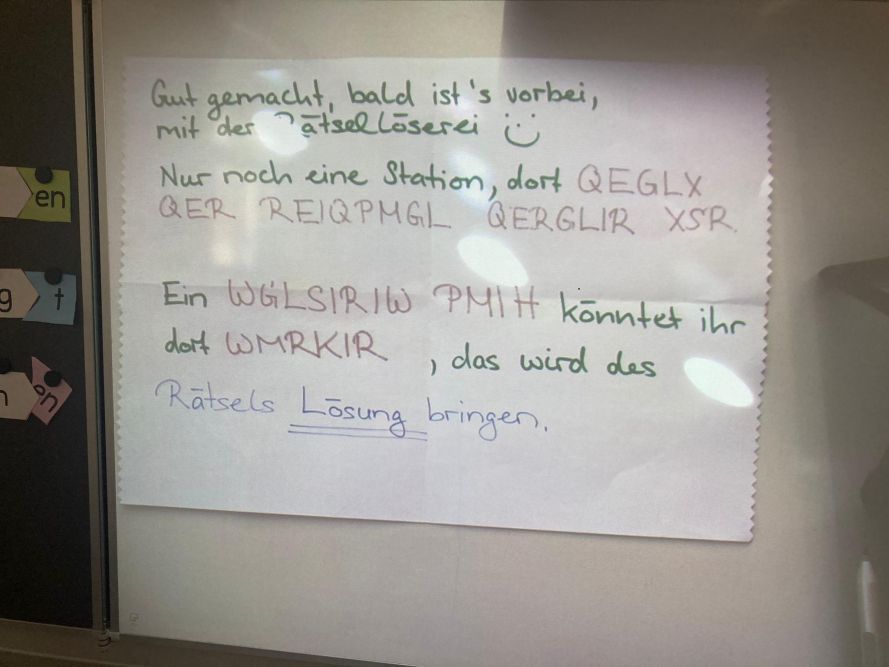 Gut gemacht, bald ist's vorbei,
mit der Rätsellöserei
Nur noch eine Station, dort QEGLX
QER REIQPMGL QERGLIR XSR.
Ein WGLSIRIW PMIH könntet ihr
dort WMRKIR, das wird des
Rätsels Lösung bringen.
en
g t
n